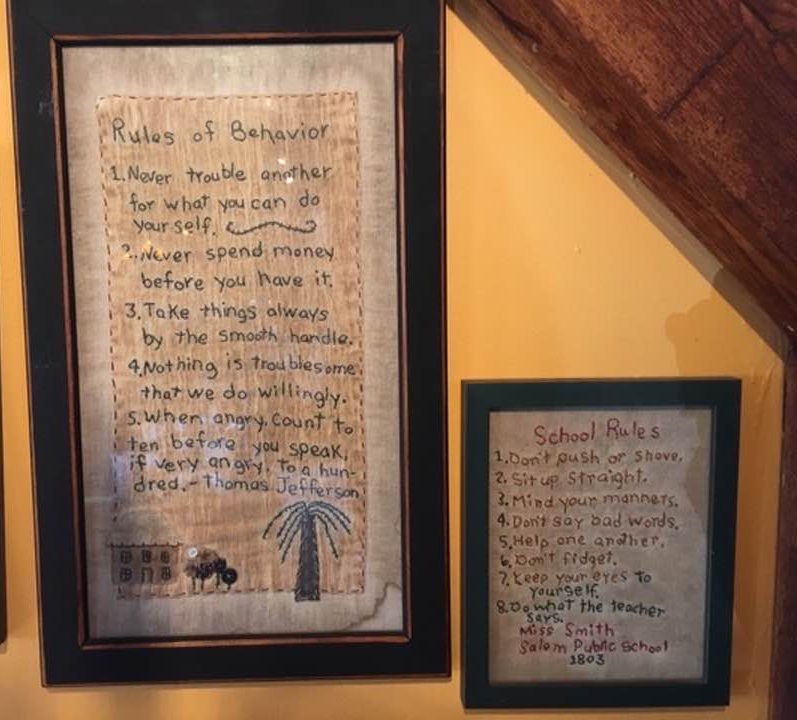 Rules of Behavior
1. Never trouble another
for what you can do
your self.
2. Never spend money
before you have it.
3. Take things always
by the smooth handle.
4. Nothing is troublesome
that we do willingly.
5. When angry, count to
ten before you speak,
if very angry, to a hun-
dred. - Thomas Jefferson
School Rules
1. Don't push or shove.
2. Sit up straight.
3. Mind your manners.
4. Don't say bad words.
5. Help one another.
6. Don't fidget.
7. Keep your eyes to
yourself.
8. Do what the teacher
says.
Miss Smith
Salem Public School
1803